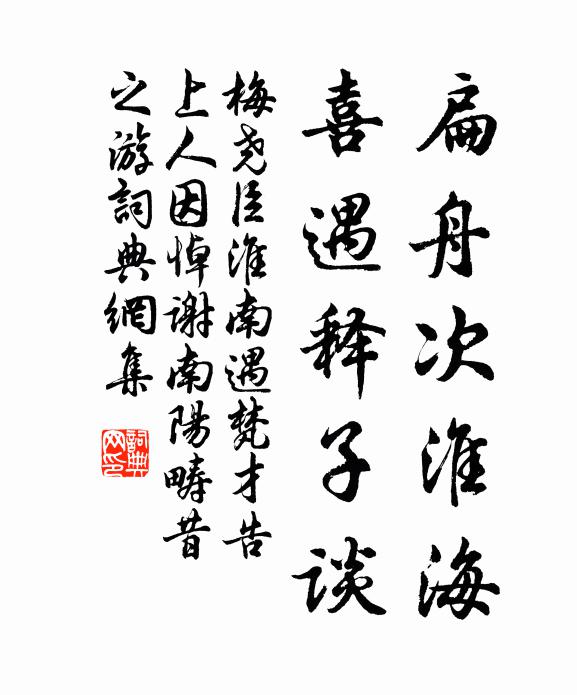 扁舟次淮海
喜遇释子谈
梅尧臣淮南遇梵才告
上人因悼谢南陽畴昔
之游詞典網集
詞典網印